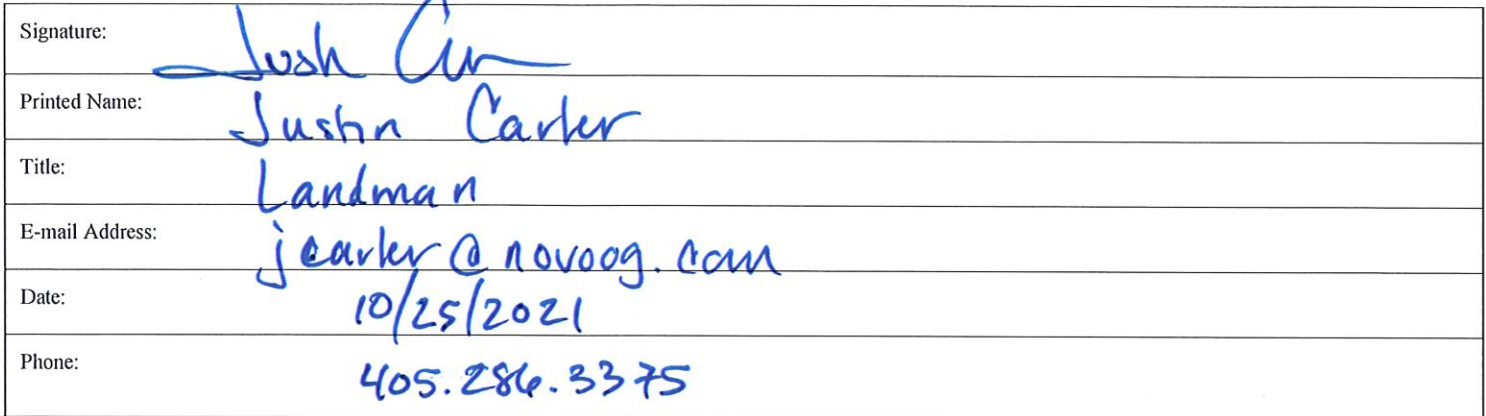 Signature:
Printed Name: Justin Carter
Title: Landman
E-mail Address: jcarter@novoog.com
Date: 10/25/2021
Phone: 405.286.3375